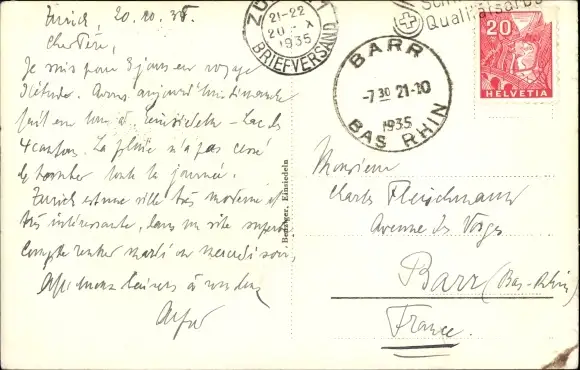 Zürich, 20.10.35
Cher Père,
Je suis pour 3 jours en voyage
d'études. Avons aujourd'hui dimanche
fait en Einsiedeln - Lac des
4 cantons. La pluie n'a pas cessé
de tomber toute la journée.
Zurich est une ville très moderne et
très intéressante, dans un site superbe
compte rentrer mardi ou mercredi soir.
baisers à
ZÜ 1
21-22
20 X
1935
BRIEFVERSAND
Qualitätsarbe
BARR
-7 30 21-10
1935
BAS RHIN
20
HELVETIA
Benziger, Einsiedeln
Monsieur
Charles Fleischmann
Avenue des Vosges
Barr (Bas-Rhin)
France.